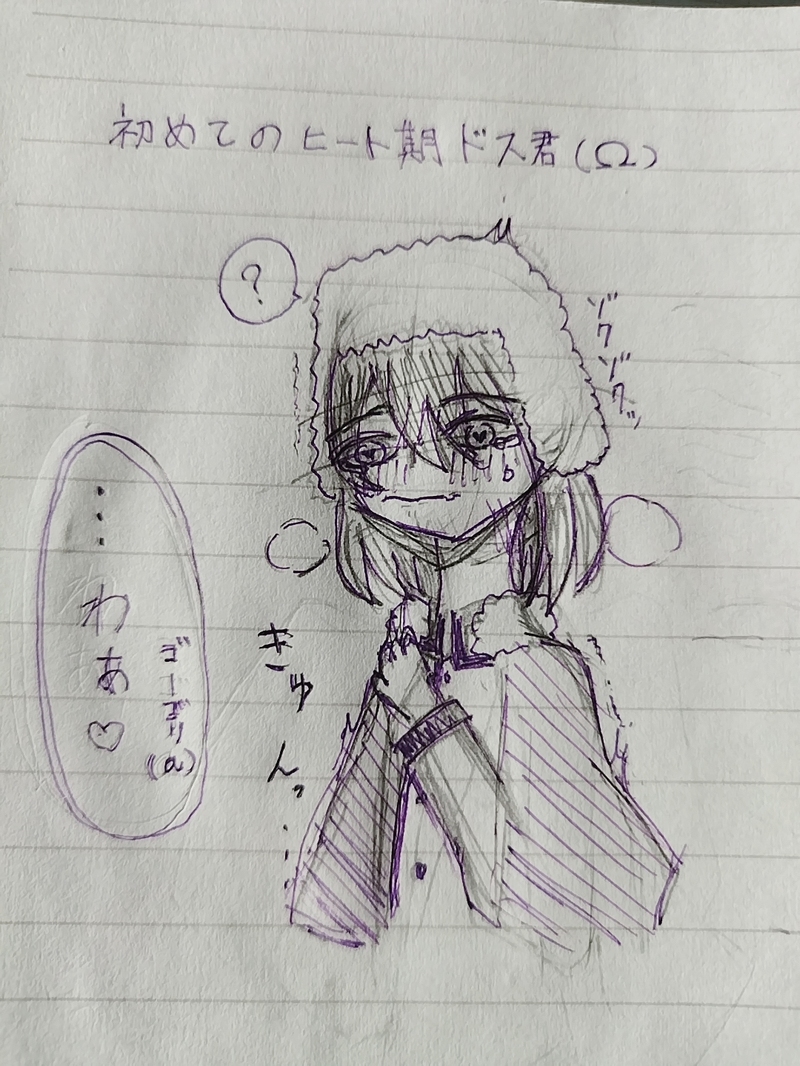 初めてのヒート期ドス君(Ω)
?
ゾクゾクッ
…わぁ♡
ごーごり(α)
きゅんっ…